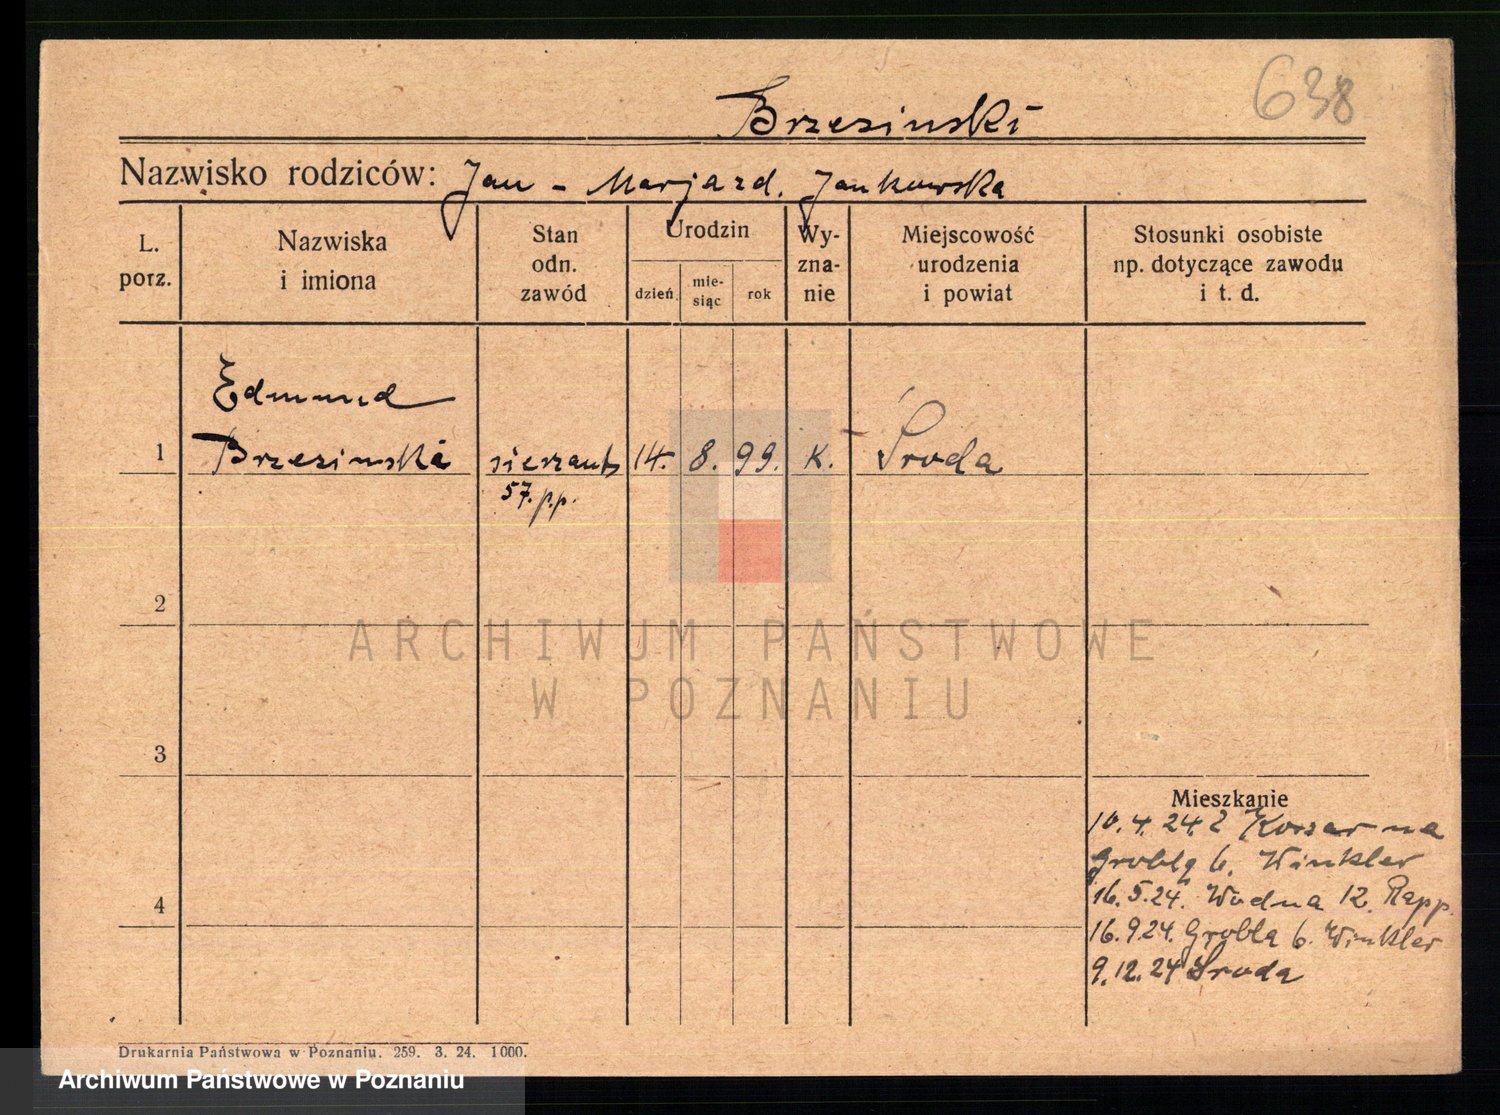 638
Brzesinski
Nazwisko rodziców: Jan - Marja zd. Jankowska
L. porz.
Nazwiska i imiona
Stan odn. zawód
Urodzin
dzień
mie-
siąc
rok
Wy-
zna-
nie
Miejscowość
urodzenia
i powiat
Stosunki osobiste
np. dotyczące zawodu
i t. d.
Edmund
1 Brzesinski sierzant 14. 8. 99. K. Środa
57. p.p.
2
3
Mieszkanie
10.4.24. z Koszar na
Groblą 6. Winkler
16.5.24. Wodna 12. Rapp.
4
16.9.24. Grobla 6. Winkler
9.12.24 Środa
Drukarnia Państwowa w Poznaniu. 259. 3. 24. 1000.
ARCHIWUM PAŃSTWOWE
W POZNANIU
Archiwum Państwowe w Poznaniu